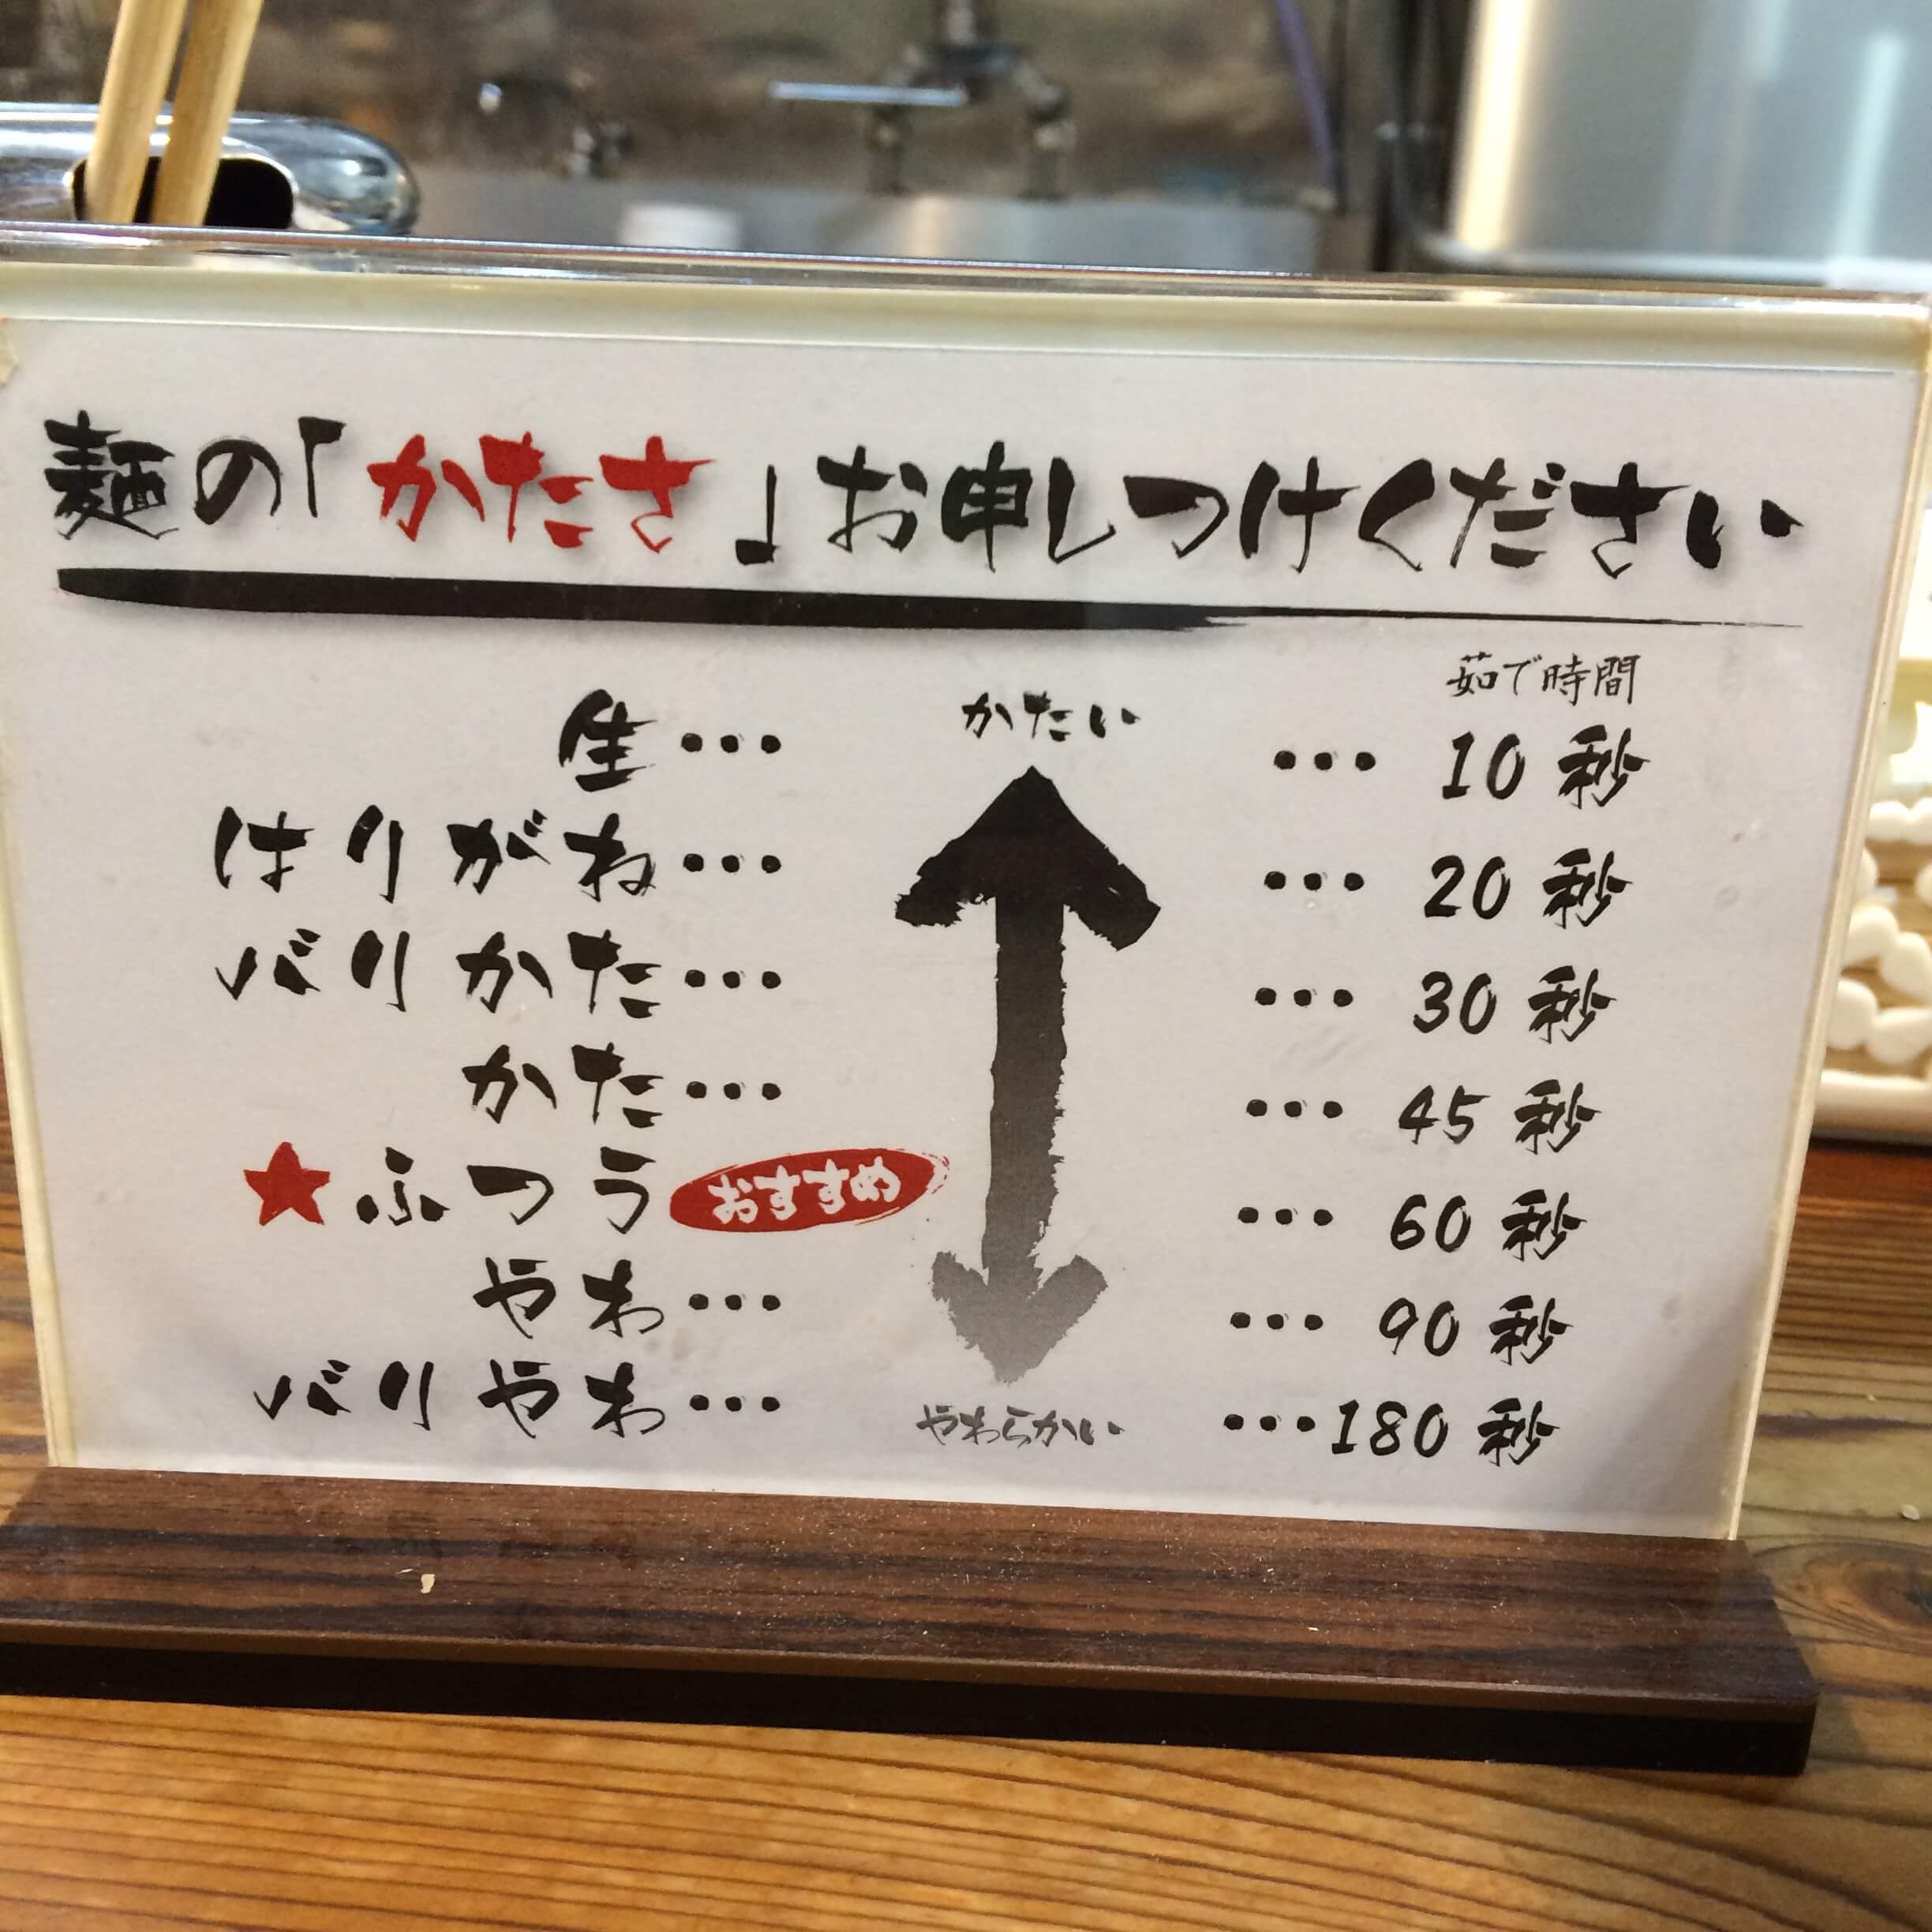 麺の「かたさ」お申しつけください
茹で時間
かたい
生… … 10秒
はりがね… … 20秒
バリかた… … 30秒
かた… … 45秒
★ふつう おすすめ … 60秒
やわ… … 90秒
バリやわ… …180秒
やわらかい